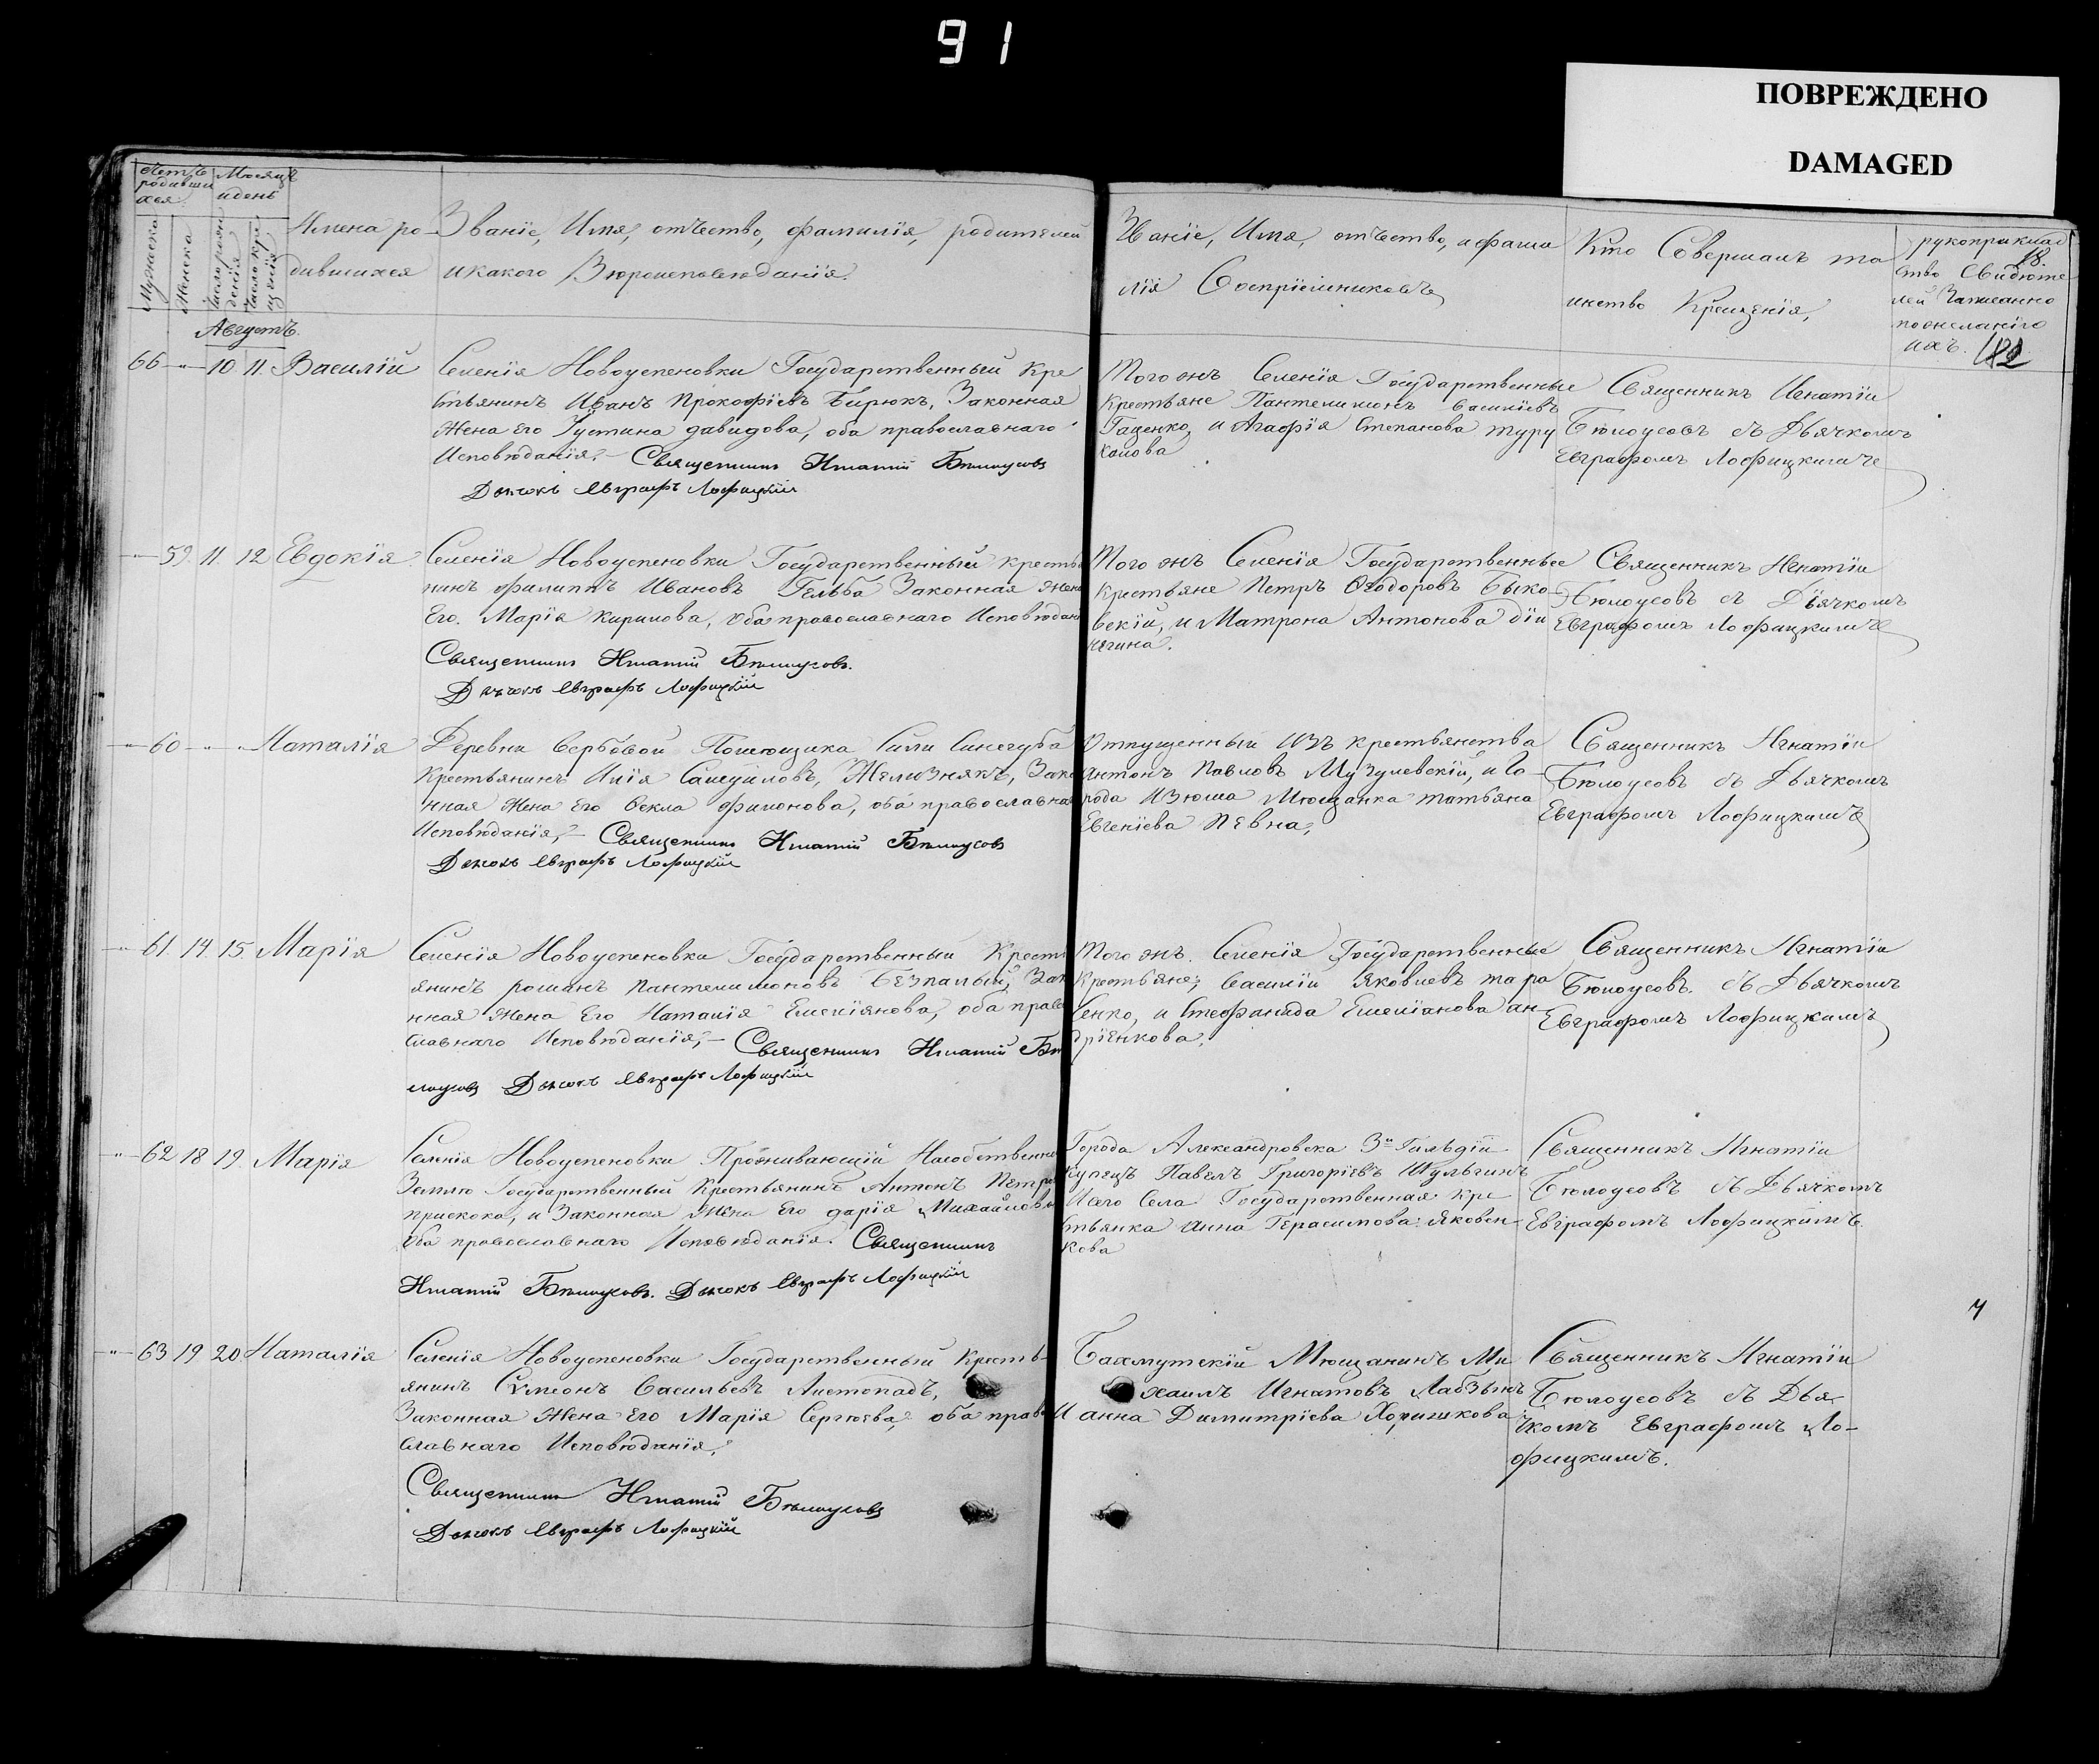 91
ПОВРЕЖДЕНО
DAMAGED
Счетъ родившихся
Мѣсяцъ и день
Мужеска
Женска
Число рожденія
Число крещенія
Имена ро-
дившихся
Званіе, Имя, отчество, фамилія, родителей
и какого Вѣроисповѣданія.
Званіе, Имя, отчество, и фами
лія Воспріемниковъ
Кто Совершалъ та
инство Крещенія,
рукоприклад
ство Свидѣте
лей Записанно
по желанію
ихъ. 182
18.
Августъ.
66 10 11 Василій
Селенія Новоуспеновки Государственный Кре
стьянинъ Иванъ Прокофіевъ Бирюкъ, Законная
Жена его Густина давидова, оба православнаго
Исповѣданія. Священникъ Игнатій Бѣлоусовъ
Дьячокъ Евграфъ Лофицкій
Того жъ Селенія Государственные
Крестьяне Пантелимонъ Василіевъ
Гаценко, и Агафія Степанова туру
ханова
Священникъ Игнатіи
Бѣлоусовъ съ Дьячкомъ
Евграфомъ Лофицкимъ
59 11 12 Евдокія
Селенія Новоуспеновки Государственный кресть
нинъ филиппъ Ивановъ Гельба Законная жена
Его Марія Кирилова, Оба православнаго Исповѣдан
Священникъ Игнатій Бѣлоусовъ.
Дьячокъ Евграфъ Лофицкій
Того жъ Селенія Государственные
Крестьяне Петръ Ѳеодоровъ Быко
вскій, и Матрона Антонова дѣи
нягина.
Священникъ Игнатіи
Бѣлоусовъ съ Дьячкомъ
Евграфомъ Лофицкимъ
60 Наталія
Деревни Вербовой Помѣщика Сили Синегуба
Крестьянинъ Илія Самуиловъ, Желизнякъ, Зако
нная Жена Его Векла филонова, оба православна
Исповѣданія, Священникъ Игнатій Бѣлоусовъ
Дьячокъ Евграфъ Лофицкій
Отпущенный Изъ крестьянства
Антонъ Павловъ Музулевскій, и Го
рода Изюма Мѣщанка татьяна
Евгеніева Певна,
Священникъ Игнатіи
Бѣлоусовъ съ Дьячкомъ
Евграфомъ Лофицкимъ
61 14 15 Марія
Селенія Новоуспеновки Государственный Кресть
янинъ романъ Пантелимоновъ Безпалый, Зак
нная Жена Его Наталія Емеліянова, оба право
славнаго Исповѣданія, Священникъ Игнатій Бѣ
лоусовъ Дьячокъ Евграфъ Лофицкій
Того жъ Селенія Государственные
Крестьяне, Василіи Яковлевъ тара
сенко, и Стефанида Емеліанова ан
дріенкова,
Священникъ Игнатіи
Бѣлоусовъ съ Дьячкомъ
Евграфомъ Лофицкимъ
62 18 19 Марія
Селенія Новоуспеновки Проживающій Насобственно
Землю Государственный Крестьянинъ Антонъ Петро
прискока, и Законная Жена Его дарія Михайлова
Оба православнаго Исповѣданія. Священникъ
Игнатій Бѣлоусовъ. Дьячокъ Евграфъ Лофицкій
Города Александровска 3й Гильдіи
Купецъ Павелъ Григоріевъ Шульгинъ
Исего Села Государственная кре
стьянка Анна Герасимова Яковен
кова
Священникъ Игнатіи
Бѣлоусовъ съ Дьячкомъ
Евграфомъ Лофицкимъ
63 19 20 Наталія
Селенія Новоуспеновки Государственный Кресть-
янинъ Сѵмеонъ Васильевъ Листопадъ,
Законная Жена Его Марія Сергѣева, оба право
славнаго Исповѣданія,
Священникъ Игнатій Бѣлоусовъ
Дьячокъ Евграфъ Лофицкій
Бахмутскій Мѣщанинъ Ми
хаилъ Игнатовъ Лабзынъ
И анна Димитріева Хоришкова
Священникъ Игнатіи
Бѣлоусовъ съ Дья
чкомъ Евграфомъ Ло-
фицкимъ.